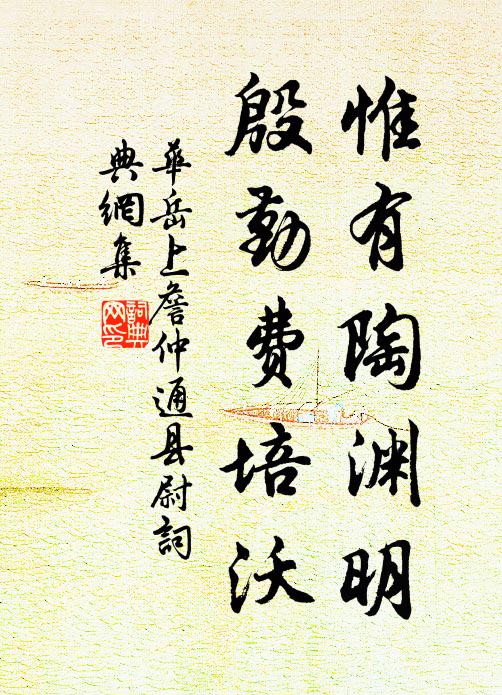 惟有陶渊明
殷勤费培沃
華岳上詹仲通县尉詞
典網集
詞典
网印